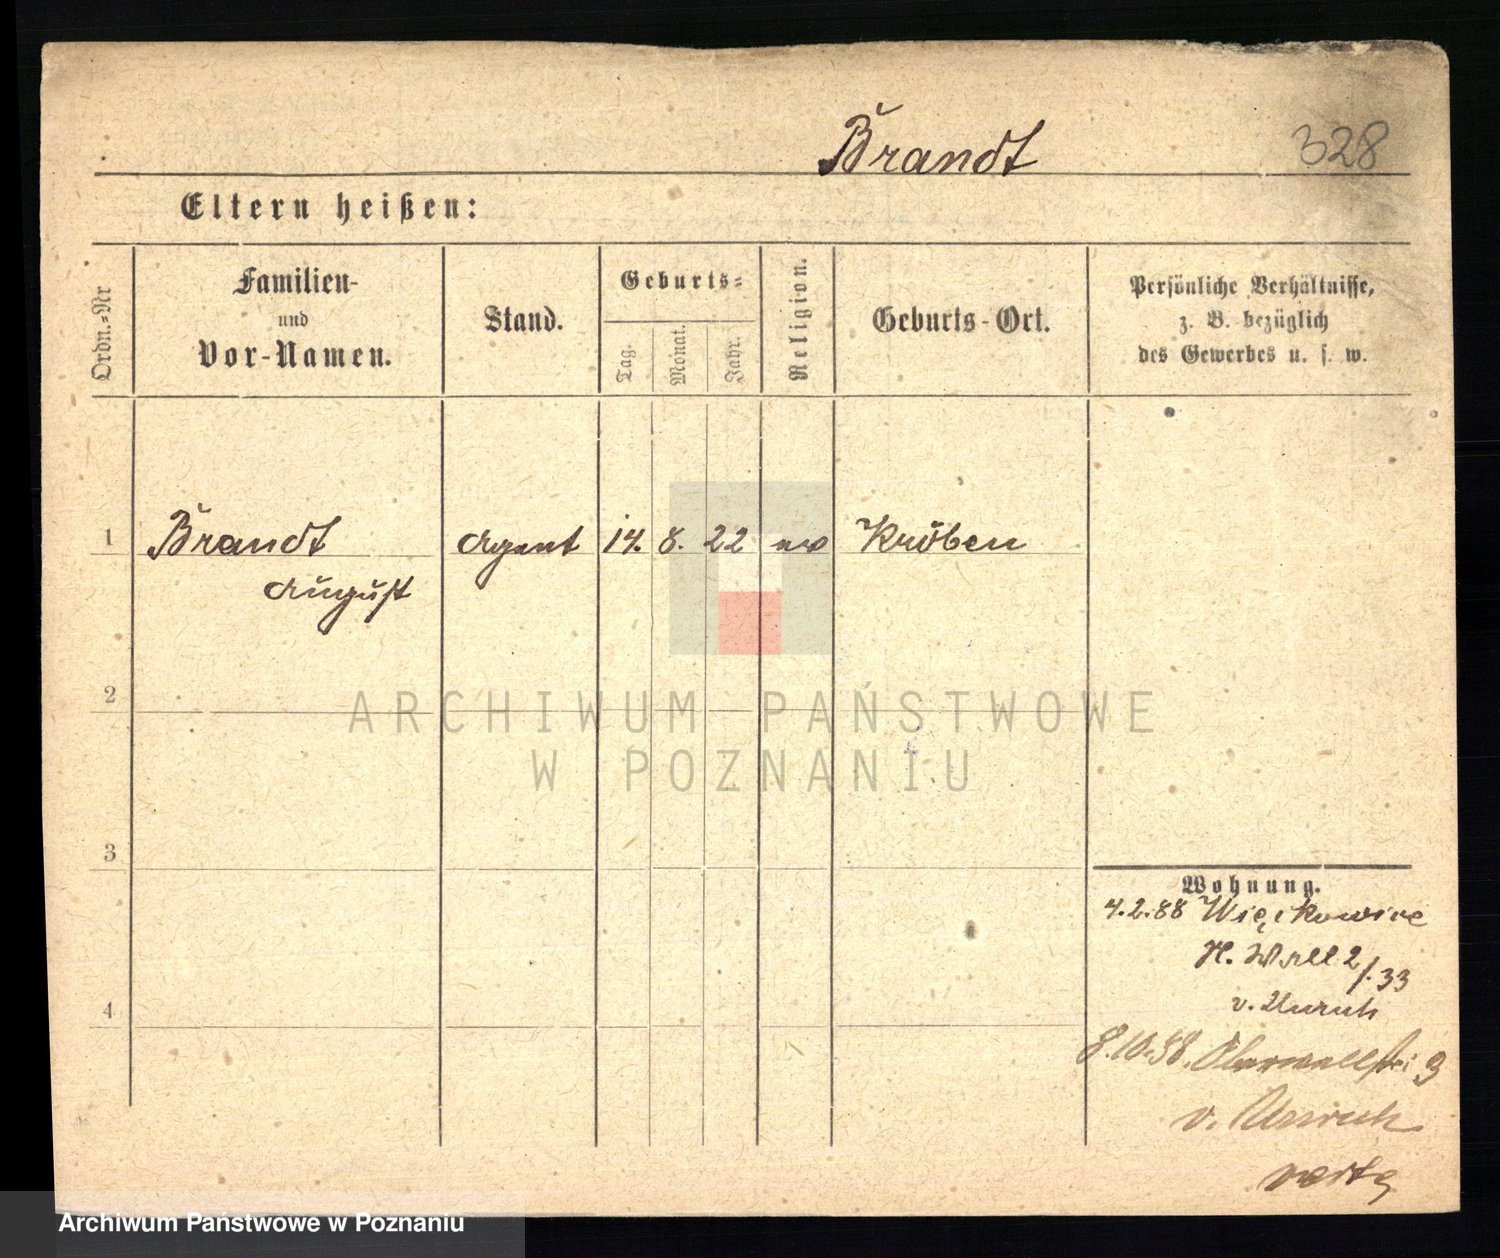 Brandt 328
Eltern heißen:
Ordn.=Nr
Familien-
und
Vor-Namen.
Stand.
Geburts=
Tag.
Monat.
Jahr.
Religion.
Geburts-Ort.
Persönliche Verhältnisse,
z. B. bezüglich
des Gewerbes u. s. w.
1 Brandt Agent 14. 8. 22 ev Kröben
August
2
ARCHIWUM PAŃSTWOWE
W POZNANIU
3
Wohnung.
4.2.88 Więckowice
H. Wall 2/33
v. Unruh
4
8.10.88. Oberwallstr 3
v. Unruh
Archiwum Państwowe w Poznaniu